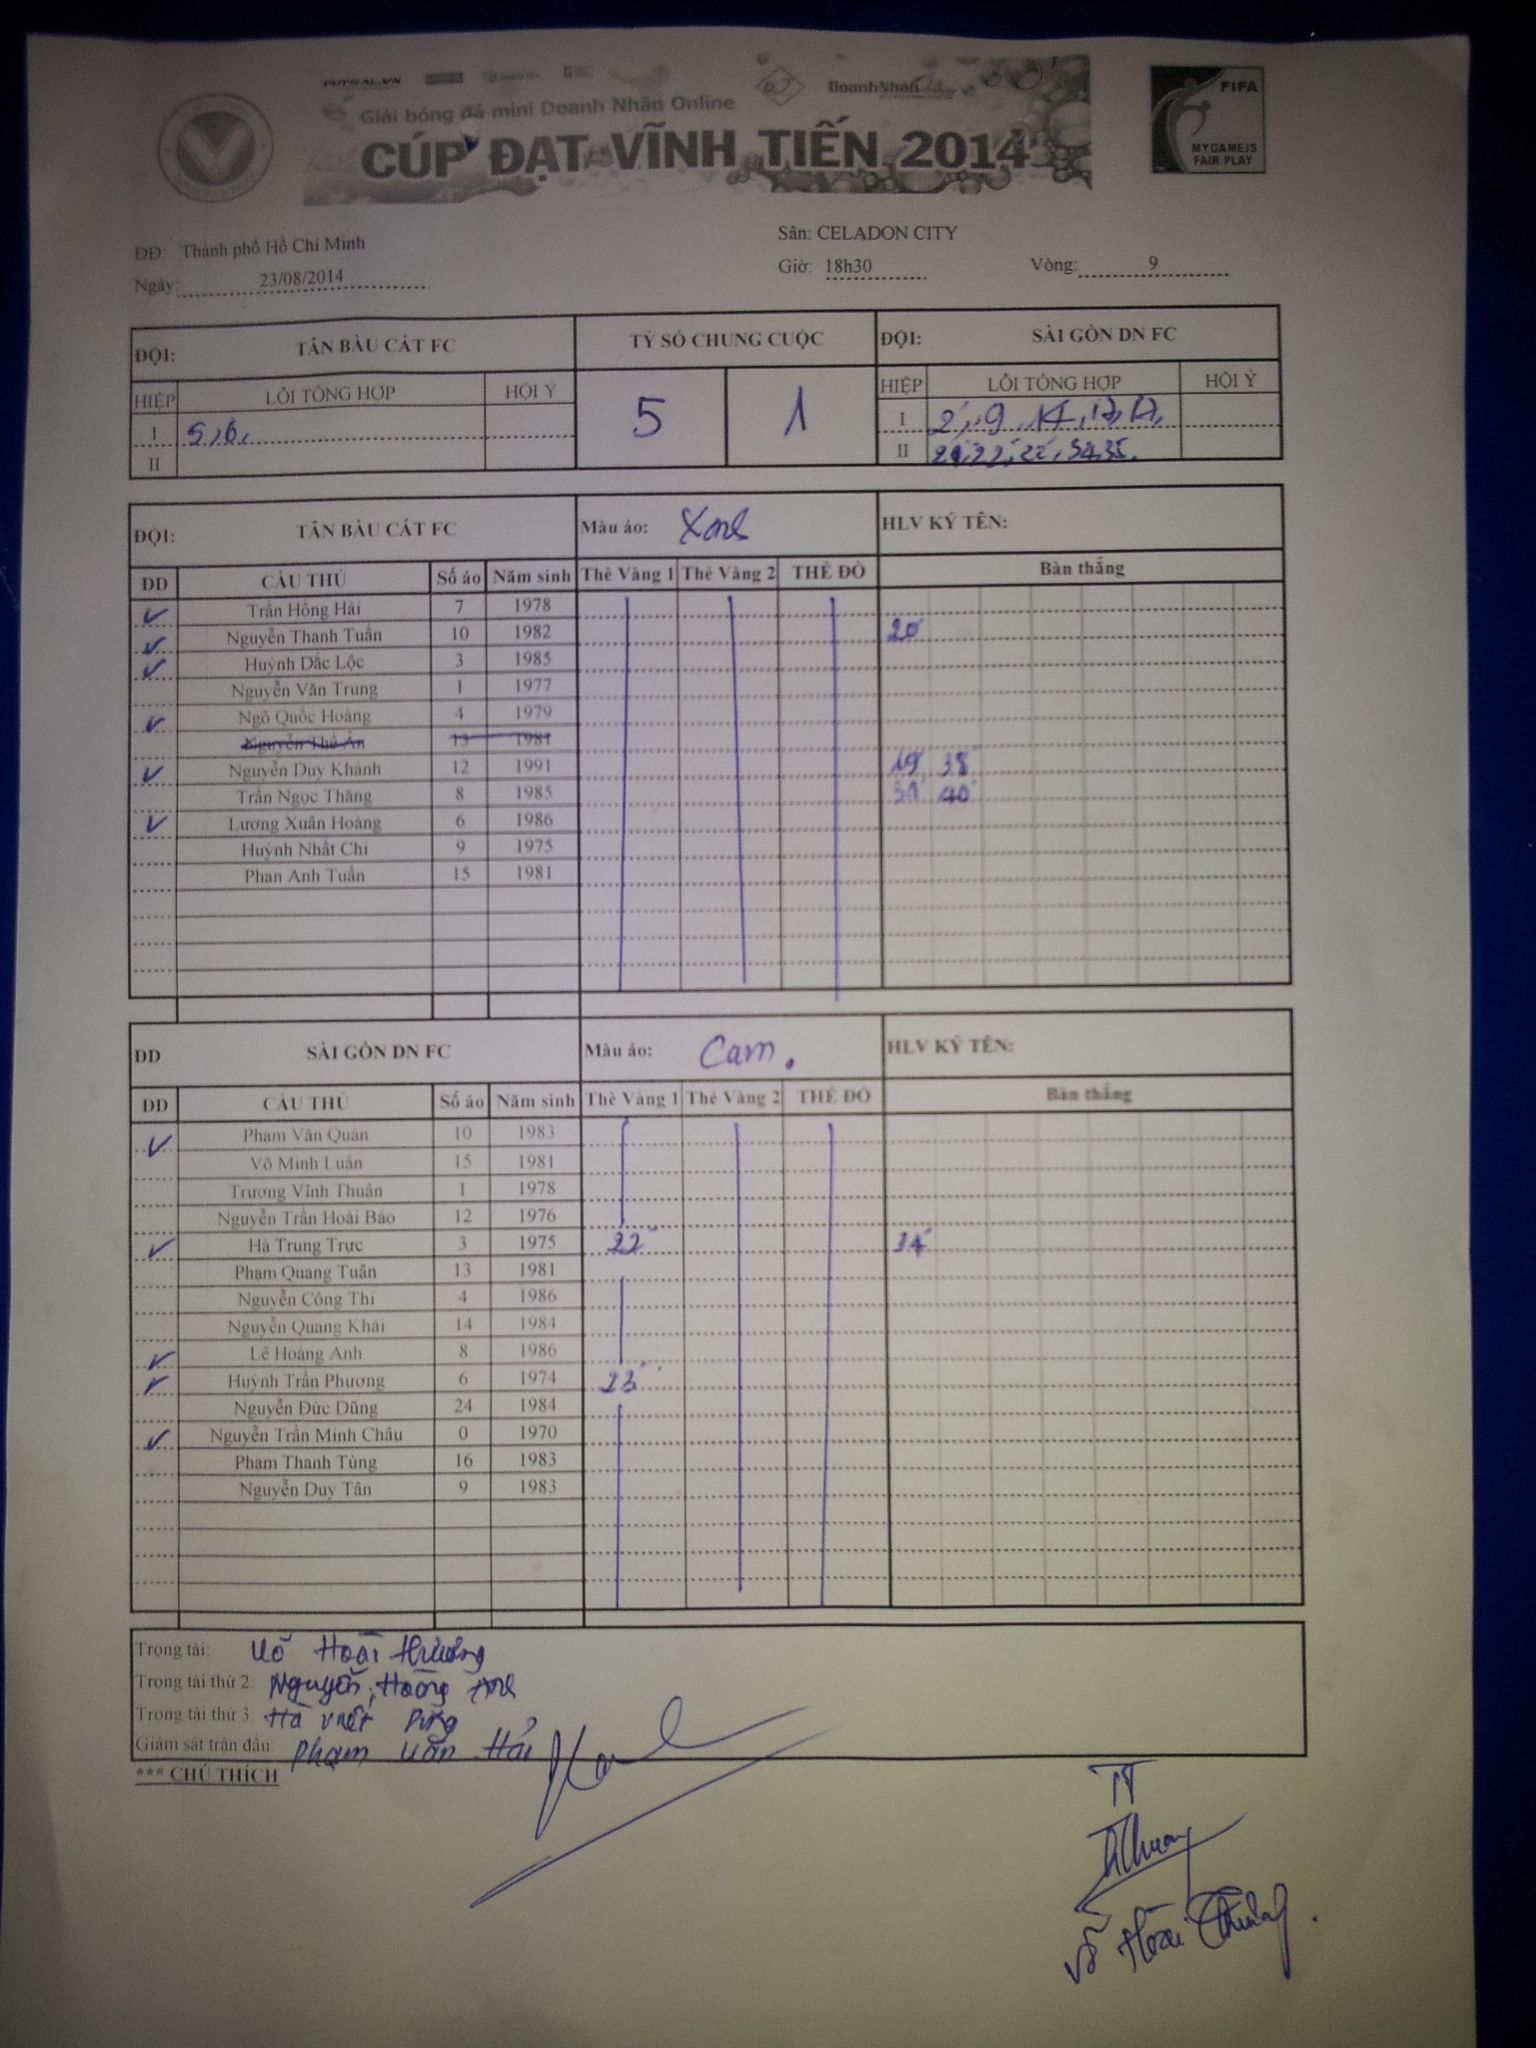 FUTSAL.VN
DoanhNhan
Giải bóng đá mini Doanh Nhân Online
CÚP ĐẠT VĨNH TIẾN 2014
FIFA
MY GAME IS
FAIR PLAY
ĐĐ: Thành phố Hồ Chí Minh
Sân: CELADON CITY
Ngày: 23/08/2014
Giờ: 18h30 Vòng: 9
ĐỘI: TÂN BÀU CÁT FC TỶ SỐ CHUNG CUỘC ĐỘI: SÀI GÒN DN FC
HIỆP LỖI TỔNG HỢP HỘI Ý 5 1 HIỆP LỖI TỔNG HỢP HỘI Ý
I 5, 6, I 2, 9, 14, 17, 17,
II II 22, 22, 34, 35.
ĐỘI: TÂN BÀU CÁT FC Màu áo: Xanh HLV KÝ TÊN:
ĐD CẦU THỦ Số áo Năm sinh Thẻ Vàng 1 Thẻ Vàng 2 THẺ ĐỎ Bàn thắng
Trần Hồng Hải 7 1978
Nguyễn Thanh Tuấn 10 1982 20'
Huỳnh Đắc Lộc 3 1985
Nguyễn Văn Trung 1 1977
Ngô Quốc Hoàng 4 1979
Nguyễn Thế Ân 13 1981
Nguyễn Duy Khánh 12 1991 19' 38'
Trần Ngọc Thăng 8 1985 31' 40'
Lương Xuân Hoàng 6 1986
Huỳnh Nhất Chi 9 1975
Phan Anh Tuấn 15 1981
ĐD SÀI GÒN DN FC Màu áo: Cam. HLV KÝ TÊN:
ĐD CẦU THỦ Số áo Năm sinh Thẻ Vàng 1 Thẻ Vàng 2 THẺ ĐỎ Bàn thắng
Phạm Văn Quân 10 1983
Võ Minh Luân 15 1981
Trương Vĩnh Thuận 1 1978
Nguyễn Trần Hoài Bảo 12 1976
Hà Trung Trực 3 1975 22'
Phạm Quang Tuân 13 1981
Nguyễn Công Thi 4 1986
Nguyễn Quang Khải 14 1984
Lê Hoàng Anh 8 1986
Huỳnh Trần Phương 6 1974 23'
Nguyễn Đức Dũng 24 1984
Nguyễn Trần Minh Châu 0 1970
Phạm Thanh Tùng 16 1983
Nguyễn Duy Tân 9 1983
Trọng tài: Võ Hoài Thương
Trọng tài thứ 2: Nguyễn Hoàng Anh
Trọng tài thứ 3: Hà Việt
Giám sát trận đấu: Phạm Văn Hải
*** CHÚ THÍCH
TT
Võ Hoài Thương